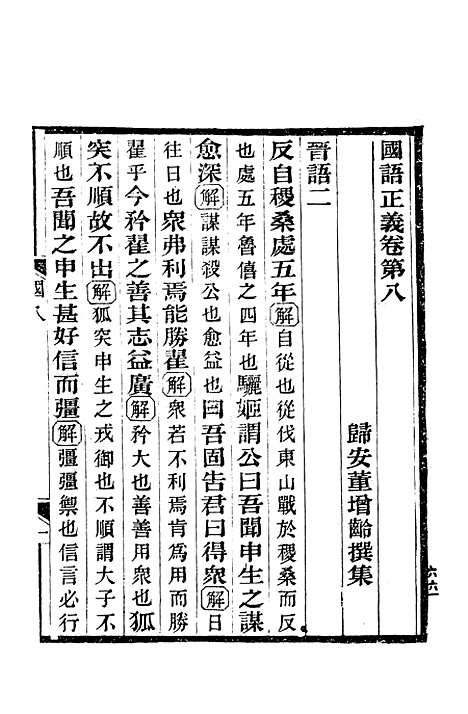 國語正義卷第八
歸安董增齡撰集
晉語二
反自稷桑處五年解自從也從伐東山戰於稷桑而反
也處五年魯僖之四年也驪姬謂公曰吾聞申生之謀
愈深解謀謀弑公也愈益也曰吾固告君曰得衆解曰
往日也衆弗利焉能勝翟解衆若不利焉肯為用而勝
翟乎今矜翟之善其志益廣解矜大也善善用衆也狐
突不順故不出解狐突申生之戎御也不順謂大子不
順也吾聞之申生甚好信而彊解彊彊禦也信言必行
國八
一
六六一